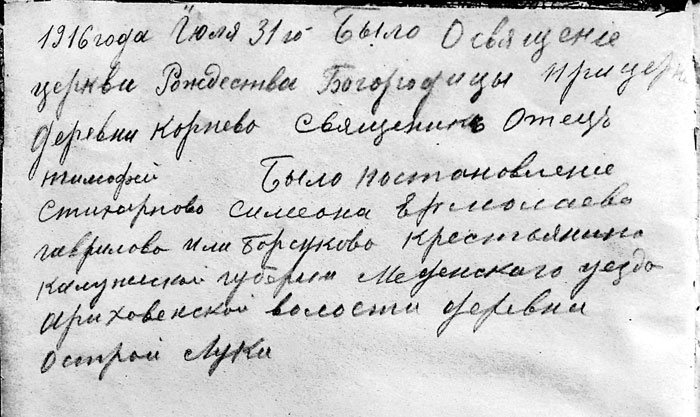 1916 года Июля 31го Было Освящение
церкви Рождества Богородицы при церк
деревни Корнево Священикъ Отецъ
тимофей Было постановление
Стихарново Симеона Ермолаева
гаврилова или Борсуково Крестьянина
Калужской губернии Меденскаго уезда
Ариховенской волости деревни
Острой Луки